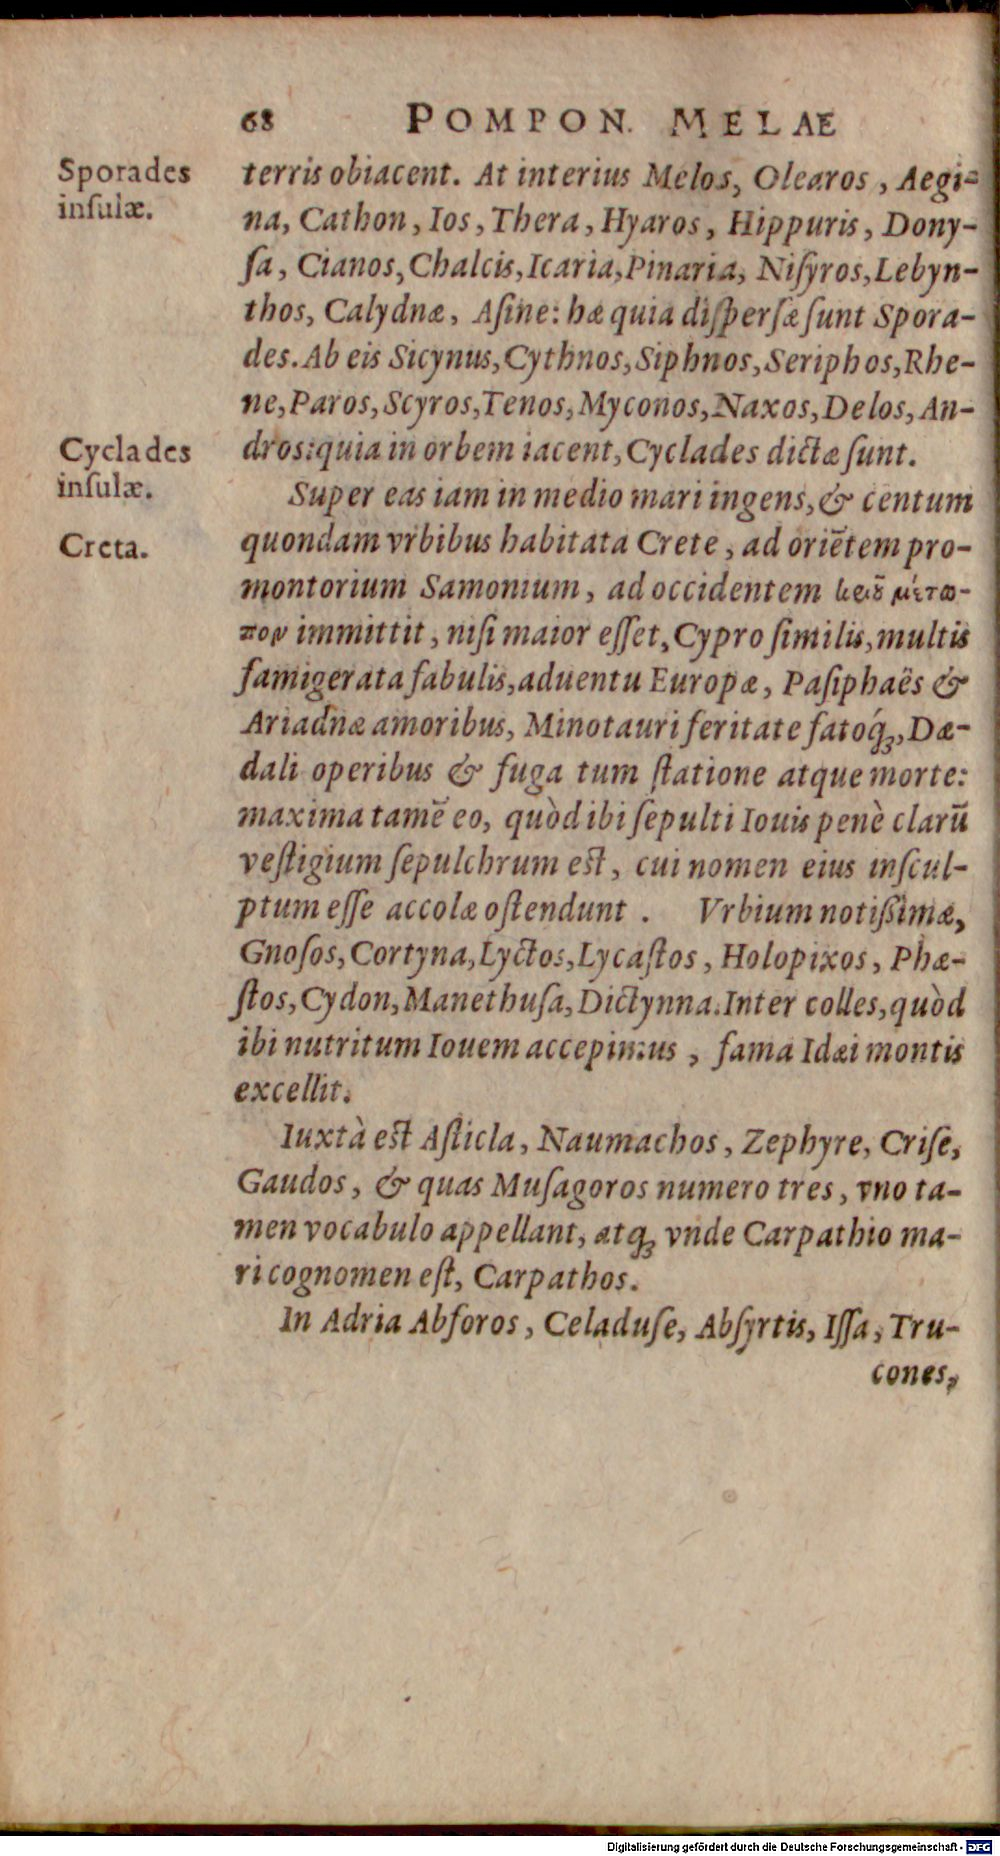 68 POMPON. MELAE
Sporades
insulæ.
terris obiacent. At interius Melos, Olearos, Aegi-
na, Cathon, Ios, Thera, Hyaros, Hippuris, Dony-
ſa, Cianos, Chalcis, Icaria, Pinaria, Niſyros, Lebyn-
thos, Calydnæ, Aſine: hæ quia diſperſæ ſunt Spora-
des. Ab eis Sicynus, Cythnos, Siphnos, Seriphos, Rhe-
ne, Paros, Scyros, Tenos, Myconos, Naxos, Delos, An-
Cyclades
inſulæ.
dros: quia in orbem iacent, Cyclades dictæ ſunt.
Super eas iam in medio mari ingens, & centum
Creta.
quondam vrbibus habitata Crete, ad oriētem pro-
montorium Samonium, ad occidentem κειοῦ μέτω-
πον immittit, niſi maior eſſet, Cypro ſimilis, multis
famigerata fabulis, aduentu Europæ, Paſiphaës &
Ariadnæ amoribus, Minotauri feritate fatoq́ꝫ, Dæ-
dali operibus & fuga tum ſtatione atque morte:
maxima tamē eo, quòd ibi ſepulti Iouis penè clarū
veſtigium ſepulchrum eſt, cui nomen eius inſcul-
ptum eſſe accolæ oſtendunt. Vrbium notißimæ,
Gnoſos, Cortyna, Lyctos, Lycaſtos, Holopixos, Phæ-
ſtos, Cydon, Manethuſa, Dictynna. Inter colles, quòd
ibi nutritum Iouem accepimus, fama Idæi montis
excellit.
Iuxtà eſt Aſticla, Naumachos, Zephyre, Criſe,
Gaudos, & quas Muſagoros numero tres, vno ta-
men vocabulo appellant, atqꝫ vnde Carpathio ma-
ri cognomen eſt, Carpathos.
In Adria Abſoros, Celaduſe, Abſyrtis, Iſſa, Tru-
cones,
Digitalisierung gefördert durch die Deutsche Forschungsgemeinschaft - DFG